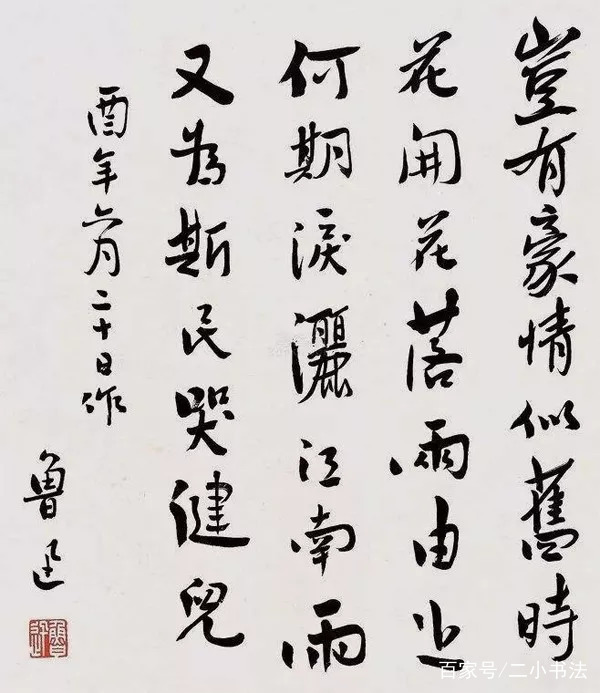 豈有豪情似舊時
花開花落兩由之
何期淚灑江南雨
又為斯民哭健兒
酉年六月二十日作
魯迅
百家号/二小书法